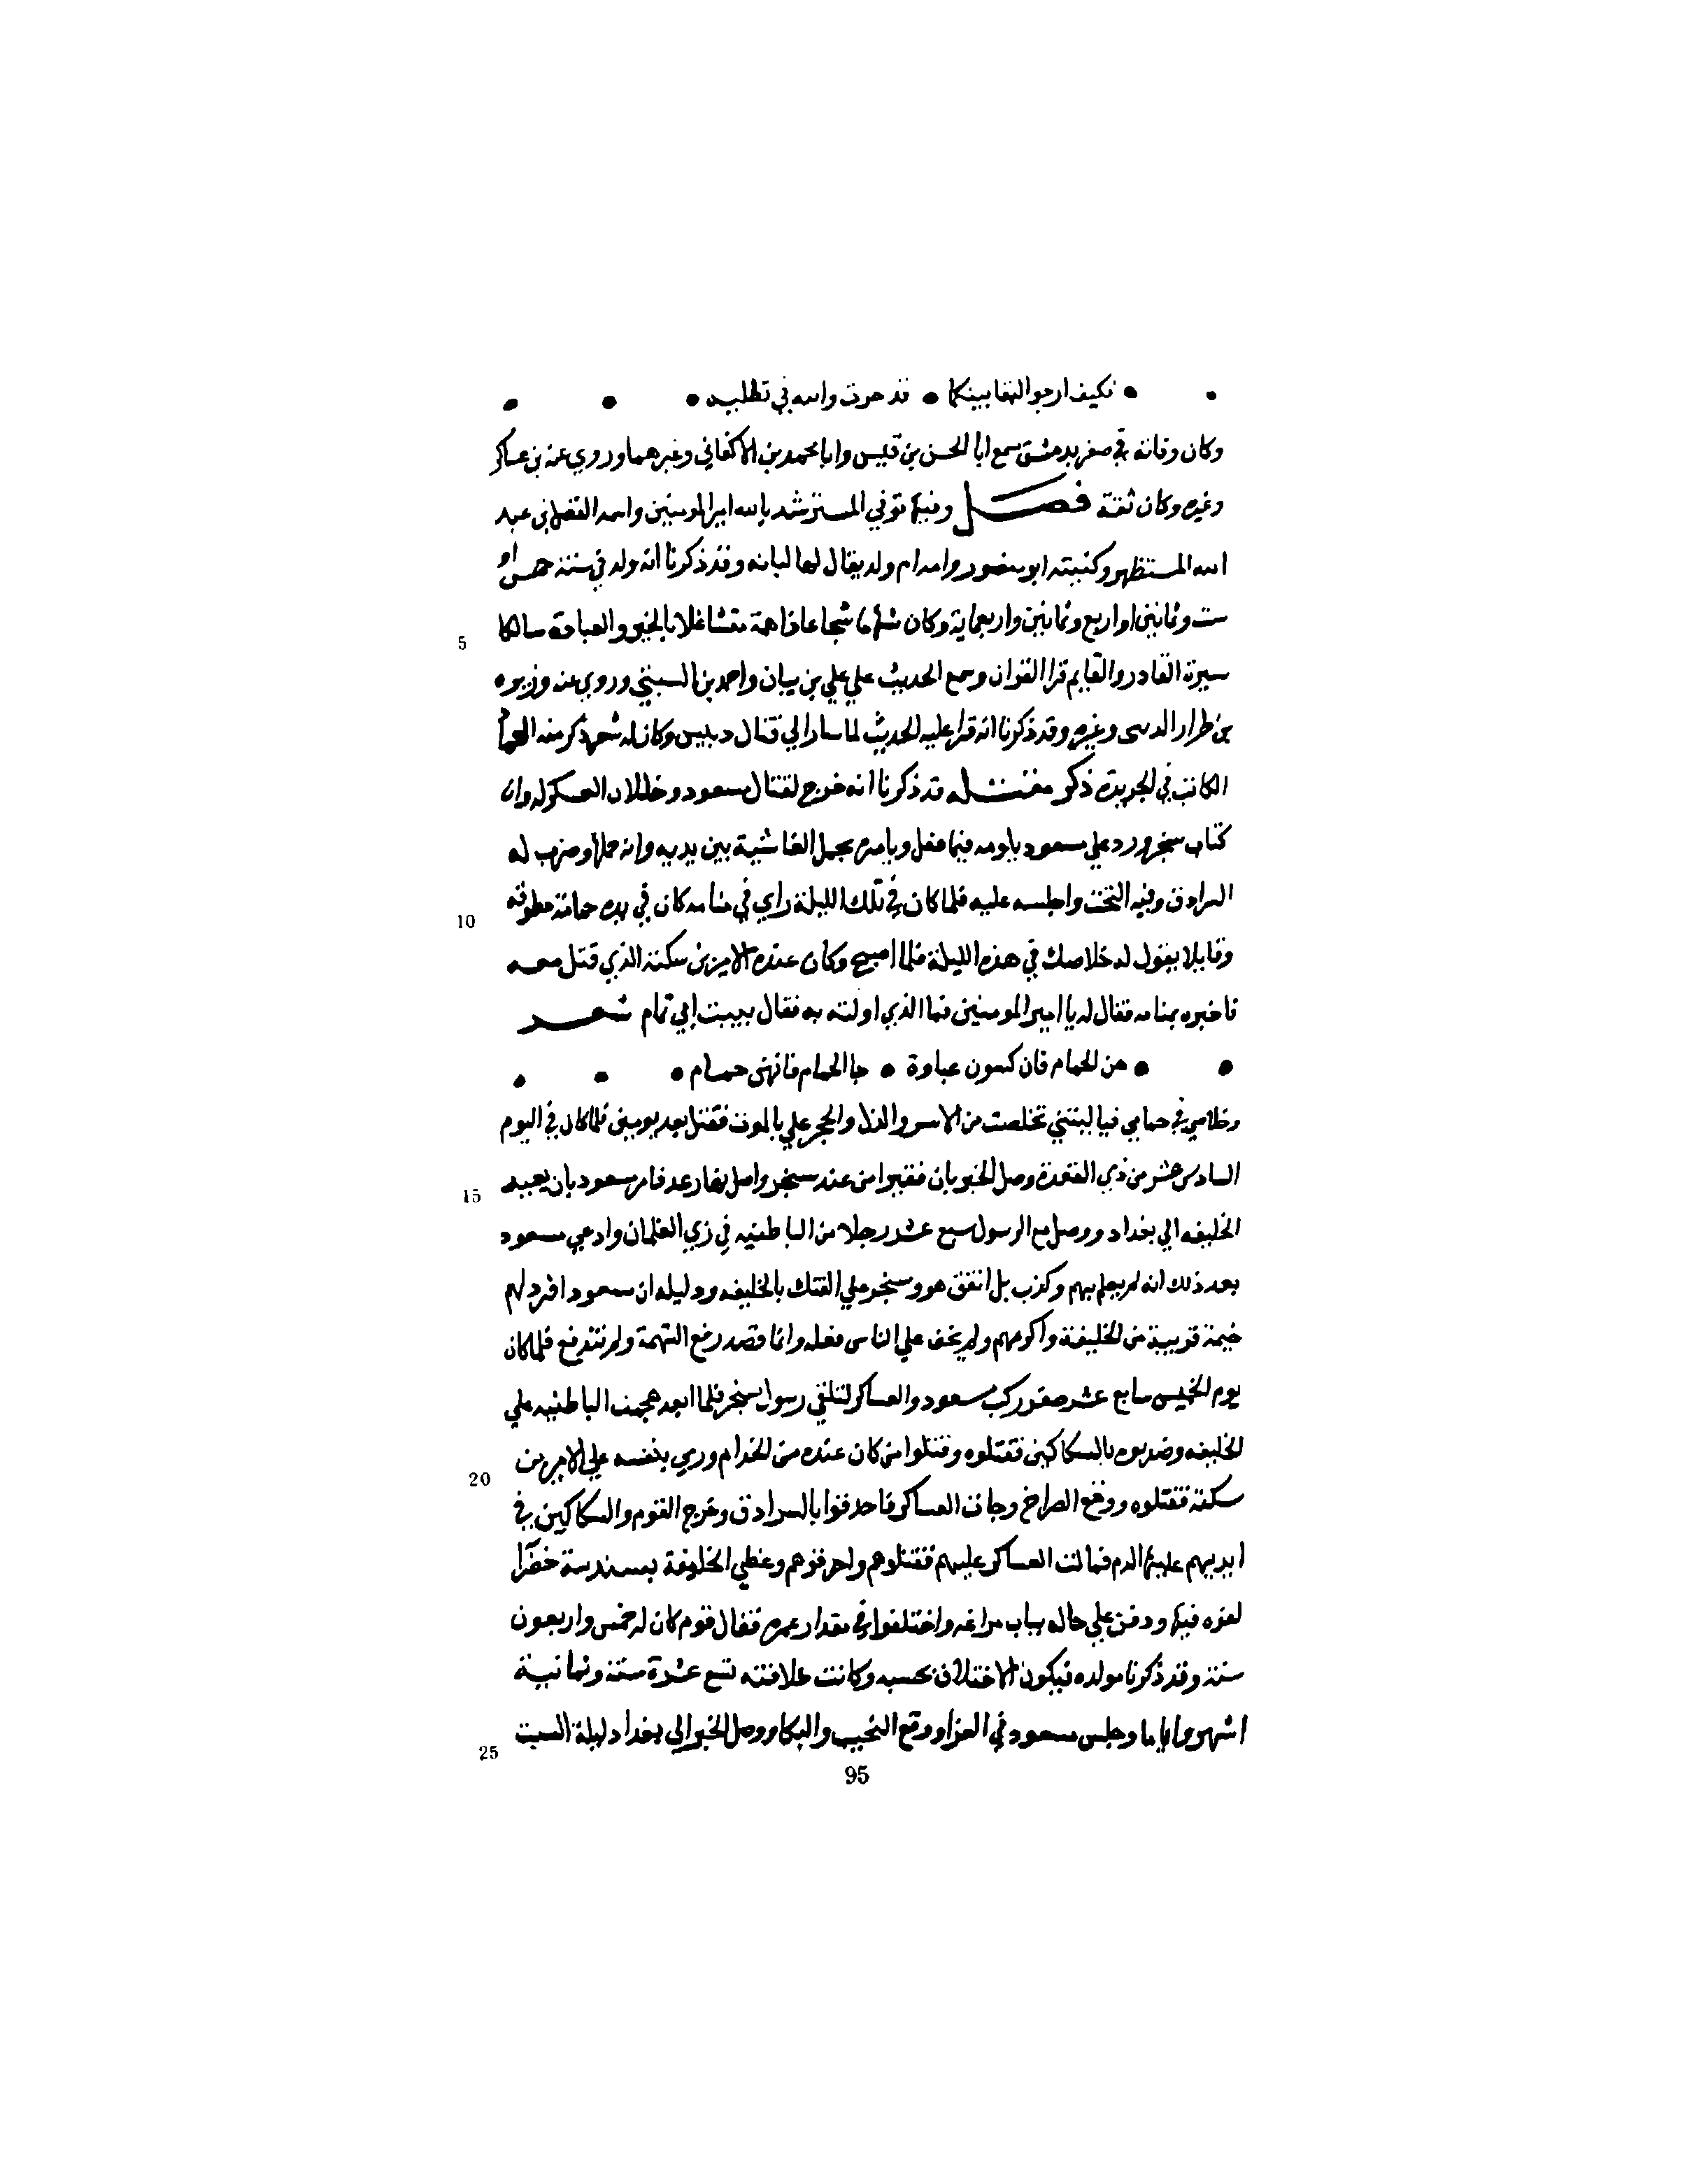 • • فكيف ارجوا البقا بينكما • قد حرت والله في تطلبيه • • •
وكان وفاته في صفر بدمشق سمع ابا الحسن بن قبيس وابا محمد بن الاكفاني وغيرهما وروي عنه بن عساكر
وغيره وكان ثقة فصل وفيها توفي المسترشد بالله امير المومنين واسمه الفضل بن عبد
الله المستظهر وكنيته ابو منصور وامه ام ولد يقال لها لبابه وقد ذكرنا انه ولد في سنة خمس او
ست وثمانين او اربع وثمانين واربعماية وكان شهما شجاعا ذا همة متشاغلا بالخير والعبادة سالكا
5
سيرة القادر والقايم قرا القران وسمع الحديث علي علي بن بيان واحمد بن السبتي وروي عنه وزيره
بن طراد الدسى وغيره وقد ذكرنا انه قرا عليه الحديث لما سار الي قتال دبيس وكان له شعر ذكر منه العماد
الكاتب في الجريدة ذكر مقتله قد ذكرنا انه خرج لقتال مسعود وخذلان العسكر له وان
كتاب سنجر ورد علي مسعود يلومه فيما فعل ويامره بحمل الغاشية بين يديه وانه حملها وضرب له
السرادق وفيه التخت واجلسه عليه فلما كان في تلك الليلة راي في منامه كان في يده حمامة مطوقه
10
وقايلا يقول له خلاصك في هذه الليلة فلما اصبح وكان عنده الامير بن سكنه الذي قتل معه
فاخبره بمنامه فقال له يا امير المومنين فما الذي اولته به فقال ببيت ابي تمام شعر
• • هن الحمام فان كسرن عباوة • حا الحمام فانهن حمام • • •
وخلاصي في حمامي فيا ليتني تخلصت من الاسر والذل والحجر علي بالموت فقتل بعد يومين فلما كان في اليوم
السادس عشر من ذي القعدة وصل الخبر بان فقيرا من عند سنجر واصل فامر مسعود بان يعيد
15
الخليفه الي بغداد ووصل مع الرسول سبع عشر رجلا من الباطنيه في زي الغلمان وادعي مسعود
بعد ذلك انه لم يعلم بهم وكذب بل اتفق هو وسنجر علي الفتك بالخليفه ودليله ان مسعود افرد لهم
خيمة قريبة من الخليفة واكرمهم ولم يخف علي الناس فعله وانما قصد رفع التهمة ولم تندفع فلما كان
يوم الخميس سابع عشر صفر ركب مسعود والعساكر لتلقي رسول سنجر فلما ابعد هجمت الباطنيه علي
الخليفه وضربوه بالسكاكين فقتلوه وقتلوا من كان عنده من الخدام ورمي بنفسه علي الامير بن
20
سكنه فقتلوه ووقع الصراخ وجات العساكر فاحدقوا بالسرادق وخرج القوم والسكاكين في
ايديهم عليها الدم فمالت العساكر عليهم فقتلوهم واحرقوهم وغطي الخليفة بسندسة خضرا
لفوه فيها ودفن علي حاله بباب مراغه واختلفوا في مقدار عمره فقال قوم كان له خمس واربعون
سنة وقد ذكرنا مولده فيكون الاختلاف بحسبه وكانت خلافته تسع عشرة سنة وثمانية
اشهر واياما وجلس مسعود في العزا ووقع النحيب والبكا ووصل الخبر الي بغداد ليلة السبت
25
95